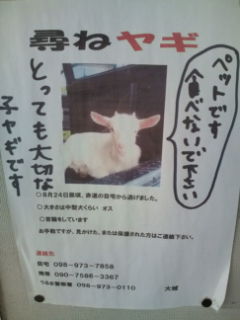 尋ねヤギ
ペットです
食べないで下さい
とっても大切な
子ヤギです
○8月24日昼頃、赤道の自宅から逃げました。
○大きさは中型犬くらい オス
○首輪をしています
お手数ですが、見かけた、または保護された方はご連絡下さい。
連絡先
自宅 098-973-7858
携帯 090-7586-3367
うるま警察署 098-973-0110
大城